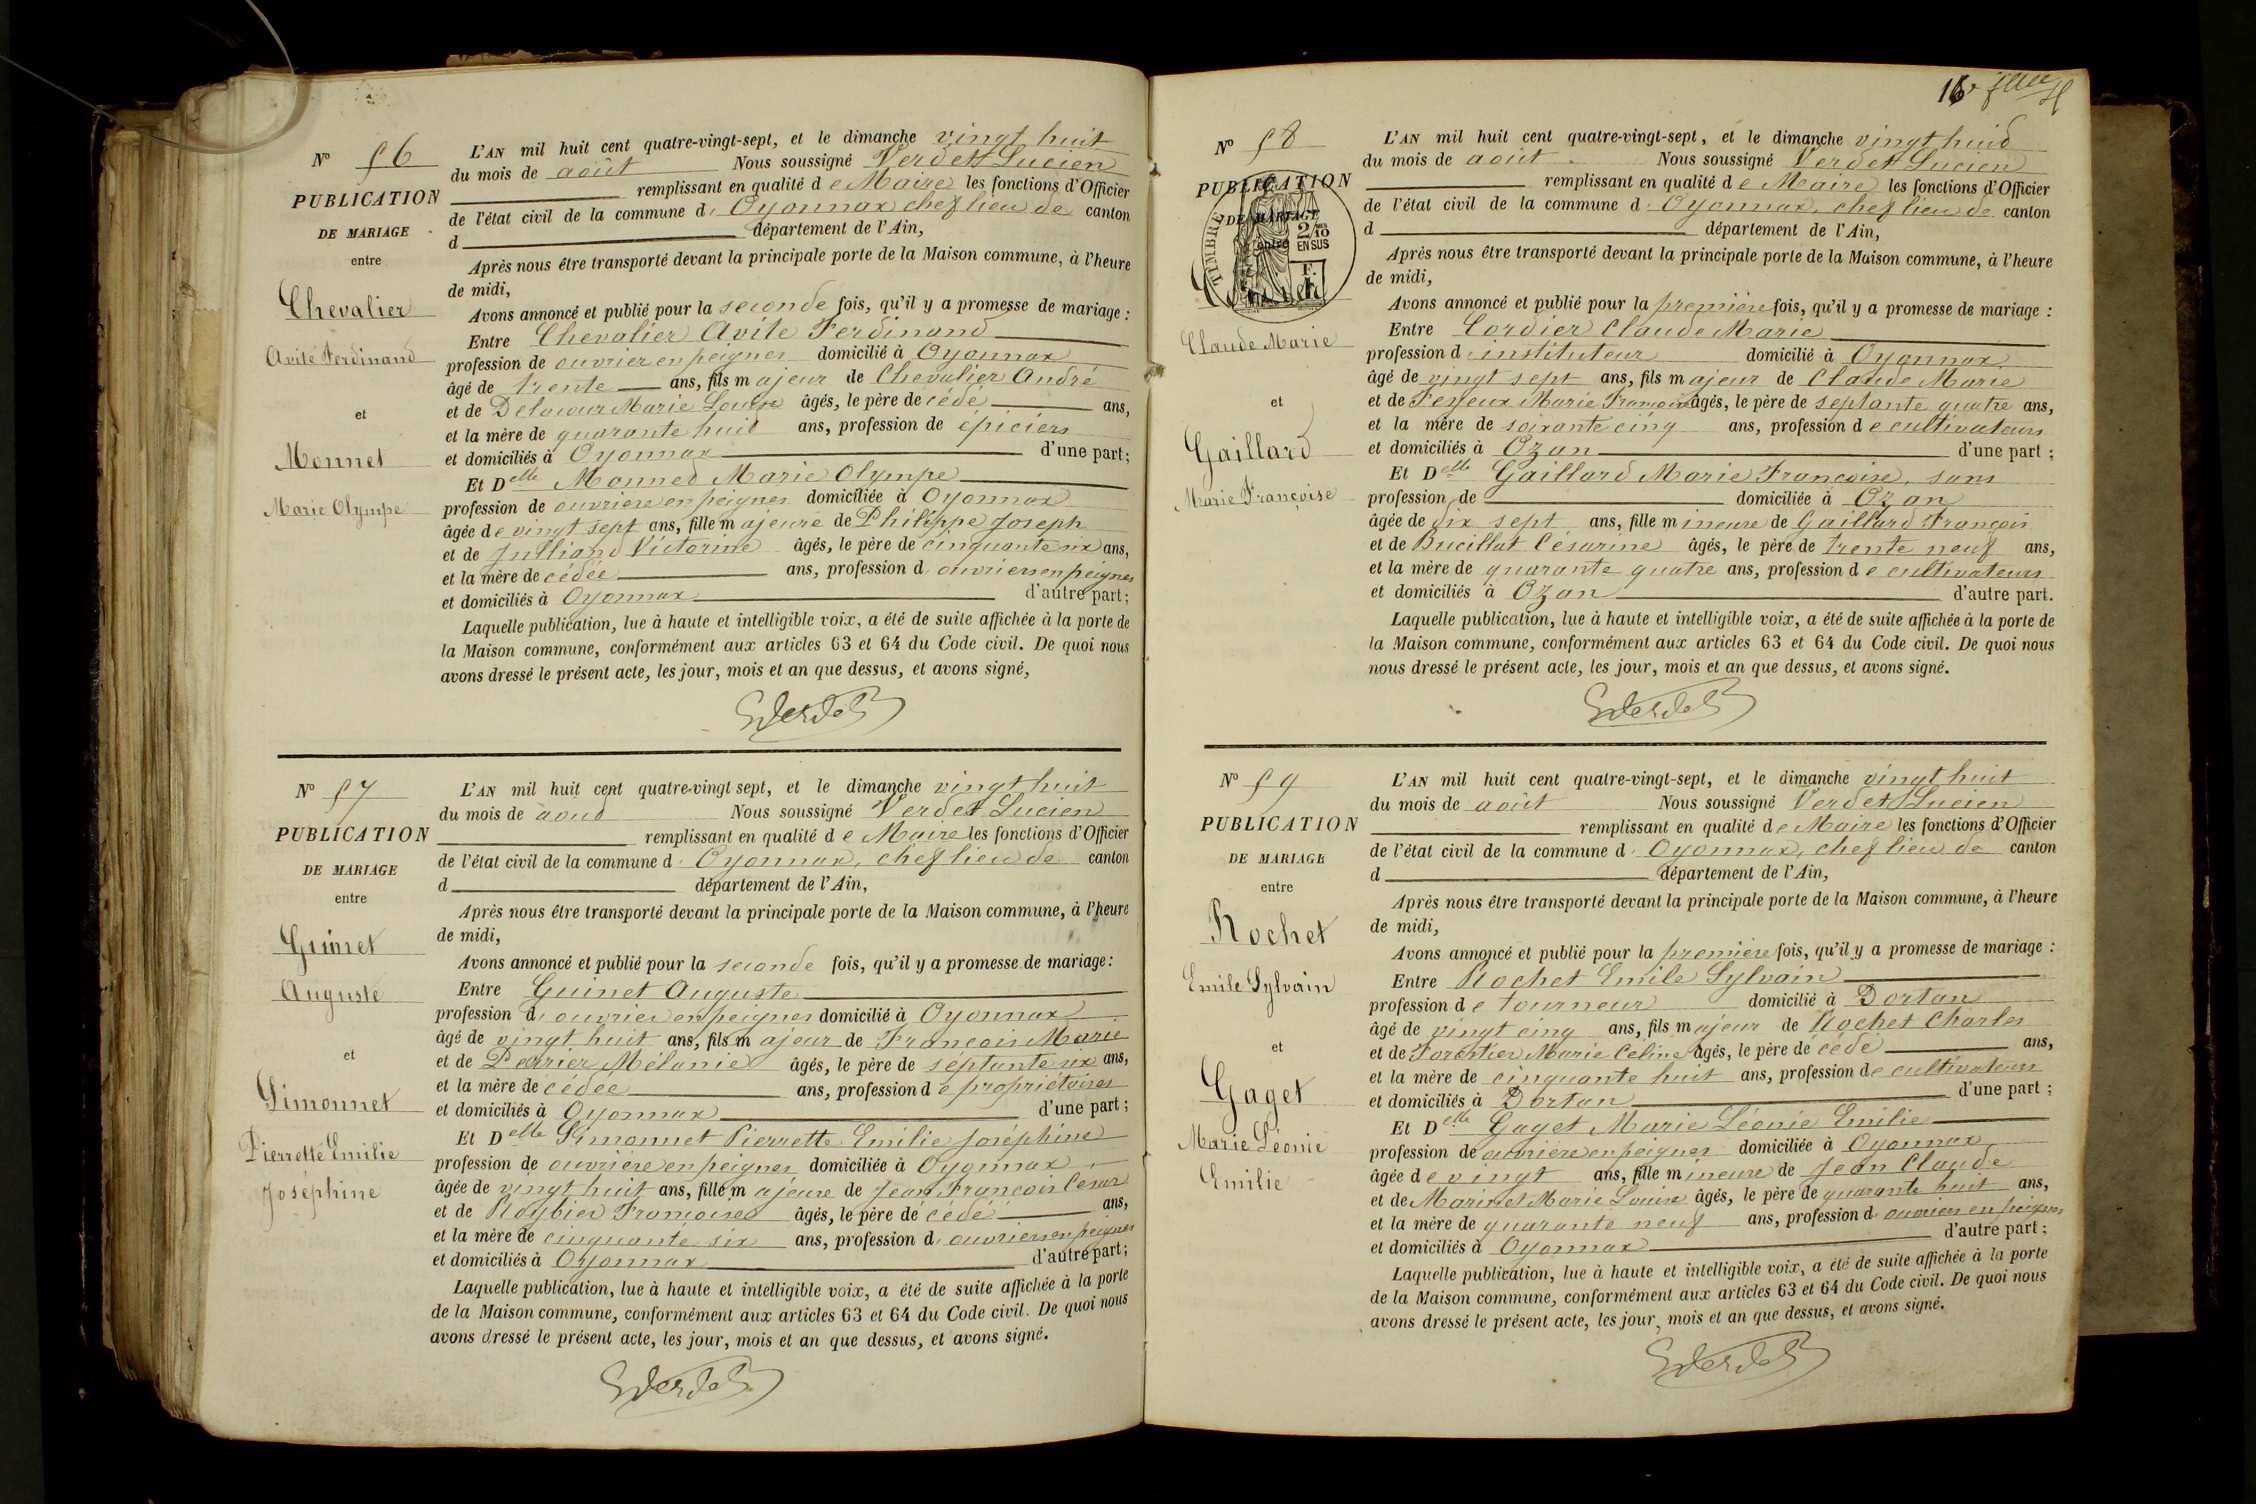 Nº 56
PUBLICATION
DE MARIAGE
entre
Chevalier
Avite Ferdinand
et
Monnet
Marie Olympe
L'AN mil huit cent quatre-vingt-sept, et le dimanche vingt huit
du mois de août Nous soussigné Verdet Lucien
remplissant en qualité de Maire les fonctions d'Officier
de l'état civil de la commune d Oyonnax chef lieu de canton
d département de l'Ain,
Après nous être transporté devant la principale porte de la Maison commune, à l'heure
de midi,
Avons annoncé et publié pour la seconde fois, qu'il y a promesse de mariage :
Entre Chevalier Avite Ferdinand
profession de ouvrier en peignes domicilié à Oyonnax
âgé de trente ans, fils majeur de Chevalier André
et de Delacour Marie Louise âgés, le père de cédé ans,
et la mère de quarante huit ans, profession de épiciers
et domiciliés à Oyonnax d'une part ;
Et Delle Monnet Marie Olympe
profession de ouvrière en peignes domiciliée à Oyonnax
âgée de vingt sept ans, fille majeure de Philippe Joseph
et de Julliand Victorine âgés, le père de cinquante six ans,
et la mère de cédée ans, profession d ouvriers en peignes
et domiciliés à Oyonnax d'autre part ;
Laquelle publication, lue à haute et intelligible voix, a été de suite affichée à la porte de
la Maison commune, conformément aux articles 63 et 64 du Code civil. De quoi nous
avons dressé le présent acte, les jour, mois et an que dessus, et avons signé,
Verdet
Nº 57
PUBLICATION
DE MARIAGE
entre
Guinet
Auguste
et
Simonnet
Pierrette Emilie
Joséphine
L'AN mil huit cent quatre-vingt sept, et le dimanche vingt huit
du mois de aout Nous soussigné Verdet Lucien
remplissant en qualité de Maire les fonctions d'Officier
de l'état civil de la commune d Oyonnax, chef lieu de canton
d département de l'Ain,
Après nous être transporté devant la principale porte de la Maison commune, à l'heure
de midi,
Avons annoncé et publié pour la seconde fois, qu'il y a promesse de mariage :
Entre Guinet Auguste
profession d ouvrier en peignes domicilié à Oyonnax
âgé de vingt huit ans, fils majeur de François Marie
et de Perrier Mélanie âgés, le père de séptante six ans,
et la mère de cédée ans, profession de propriétaires
et domiciliés à Oyonnax d'une part ;
Et Delle Simonnet Pierrette Emilie Joséphine
profession de ouvrière en peignes domiciliée à Oyonnax
âgée de vingt huit ans, fille majeure de Jean François César
et de Roybier Françoise âgés, le père de cédé ans,
et la mère de cinquante six ans, profession d ouvriers en peignes
et domiciliés à Oyonnax d'autre part ;
Laquelle publication, lue à haute et intelligible voix, a été de suite affichée à la porte
de la Maison commune, conformément aux articles 63 et 64 du Code civil. De quoi nous
avons dressé le présent acte, les jour, mois et an que dessus, et avons signé.
Verdet
16e
Nº 58
PUBLICATION
DE MARIAGE
entre
TIMBRE
2/10
EN SUS
Claude Marie
et
Gaillard
Marie Françoise
L'AN mil huit cent quatre-vingt-sept, et le dimanche vingt huit
du mois de août Nous soussigné Verdet Lucien
remplissant en qualité de Maire les fonctions d'Officier
de l'état civil de la commune d Oyonnax, chef lieu de canton
d département de l'Ain,
Après nous être transporté devant la principale porte de la Maison commune, à l'heure
de midi,
Avons annoncé et publié pour la première fois, qu'il y a promesse de mariage :
Entre Cordier Claude Marie
profession d instituteur domicilié à Oyonnax
âgé de vingt sept ans, fils majeur de Claude Marie
et de Marie Françoise âgés, le père de septante quatre ans,
et la mère de soixante cinq ans, profession de cultivateurs
et domiciliés à Ozan d'une part ;
Et Delle Gaillard Marie Françoise, sans
profession de domiciliée à Ozan
âgée de dix sept ans, fille mineure de Gaillard François
et de Bucillat Césarine âgés, le père de trente neuf ans,
et la mère de quarante quatre ans, profession de cultivateurs
et domiciliés à Ozan d'autre part.
Laquelle publication, lue à haute et intelligible voix, a été de suite affichée à la porte de
la Maison commune, conformément aux articles 63 et 64 du Code civil. De quoi nous
nous dressé le présent acte, les jour, mois et an que dessus, et avons signé.
Verdet
Nº 59
PUBLICATION
DE MARIAGE
entre
Rochet
Emile Sylvain
et
Gaget
Marie Léonie
Emilie
L'AN mil huit cent quatre-vingt-sept, et le dimanche vingt huit
du mois de août Nous soussigné Verdet Lucien
remplissant en qualité de Maire les fonctions d'Officier
de l'état civil de la commune d Oyonnax, chef lieu de canton
d département de l'Ain,
Après nous être transporté devant la principale porte de la Maison commune, à l'heure
de midi,
Avons annoncé et publié pour la première fois, qu'il y a promesse de mariage :
Entre Rochet Emile Sylvain
profession de tourneur domicilié à Dortan
âgé de vingt cinq ans, fils majeur de Rochet Charles
et de Forestier Marie Celine âgés, le père de cédé ans,
et la mère de cinquante huit ans, profession de cultivateurs
et domiciliés à Dortan d'une part ;
Et Delle Gaget Marie Léonie Emilie
profession de ouvrière en peignes domiciliée à Oyonnax
âgée de vingt ans, fille mineure de Jean Claude
et de Marinet Marie Louise âgés, le père de quarante huit ans,
et la mère de quarante neuf ans, profession d ouvriers en peignes
et domiciliés à Oyonnax d'autre part ;
Laquelle publication, lue à haute et intelligible voix, a été de suite affichée à la porte
de la Maison commune, conformément aux articles 63 et 64 du Code civil. De quoi nous
avons dressé le présent acte, les jour, mois et an que dessus, et avons signé.
Verdet